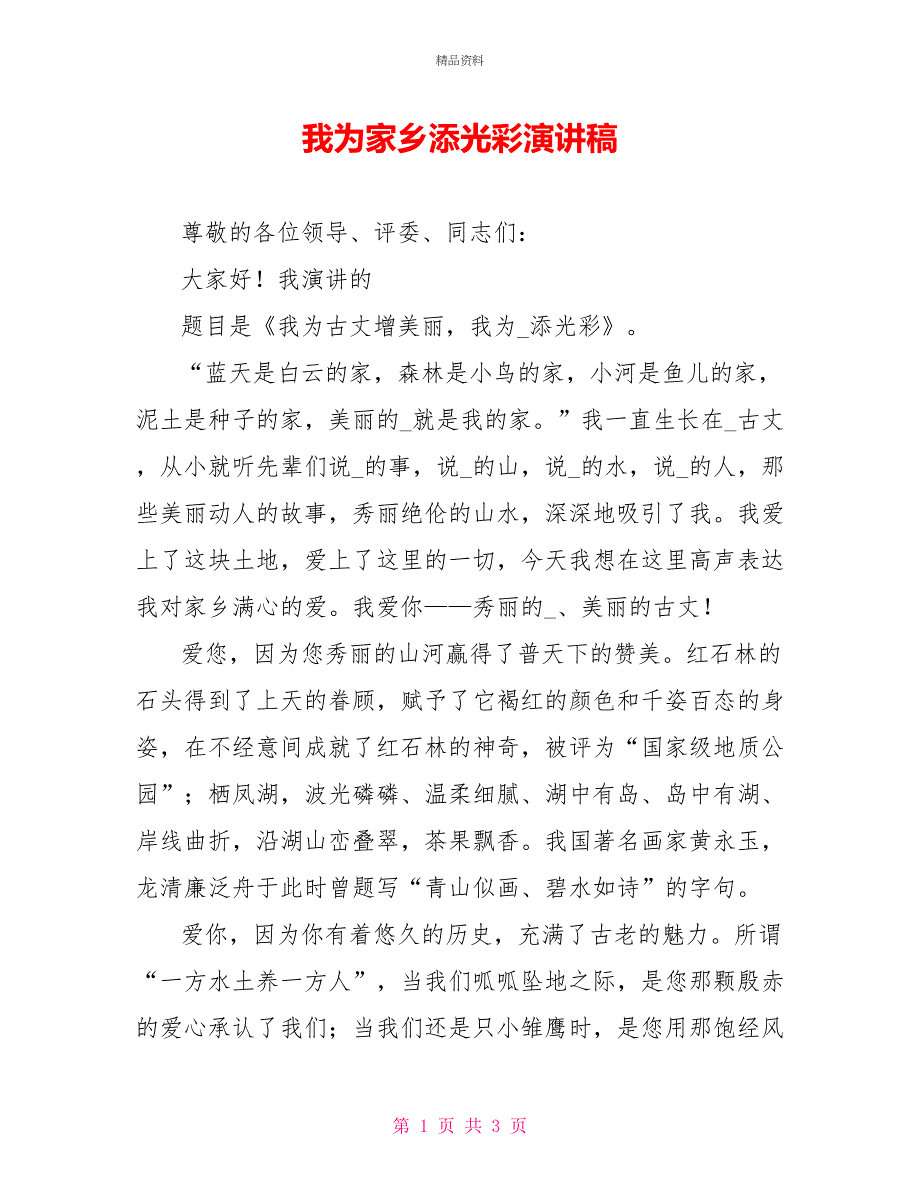 精品资料
我为家乡添光彩演讲稿
尊敬的各位领导、评委、同志们：
大家好！我演讲的
题目是《我为古丈增美丽，我为_添光彩》。
“蓝天是白云的家，森林是小鸟的家，小河是鱼儿的家，
泥土是种子的家，美丽的_就是我的家。”我一直生长在_古丈
，从小就听先辈们说_的事，说_的山，说_的水，说_的人，那
些美丽动人的故事，秀丽绝伦的山水，深深地吸引了我。我爱
上了这块土地，爱上了这里的一切，今天我想在这里高声表达
我对家乡满心的爱。我爱你——秀丽的_、美丽的古丈！
爱您，因为您秀丽的山河赢得了普天下的赞美。红石林的
石头得到了上天的眷顾，赋予了它褐红的颜色和千姿百态的身
姿，在不经意间成就了红石林的神奇，被评为“国家级地质公
园”；栖凤湖，波光磷磷、温柔细腻、湖中有岛、岛中有湖、
岸线曲折，沿湖山峦叠翠，茶果飘香。我国著名画家黄永玉，
龙清廉泛舟于此时曾题写“青山似画、碧水如诗”的字句。
爱你，因为你有着悠久的历史，充满了古老的魅力。所谓
“一方水土养一方人”，当我们呱呱坠地之际，是您那颗殷赤
的爱心承认了我们；当我们还是只小雏鹰时，是您用那饱经风
第 1 页 共 3 页